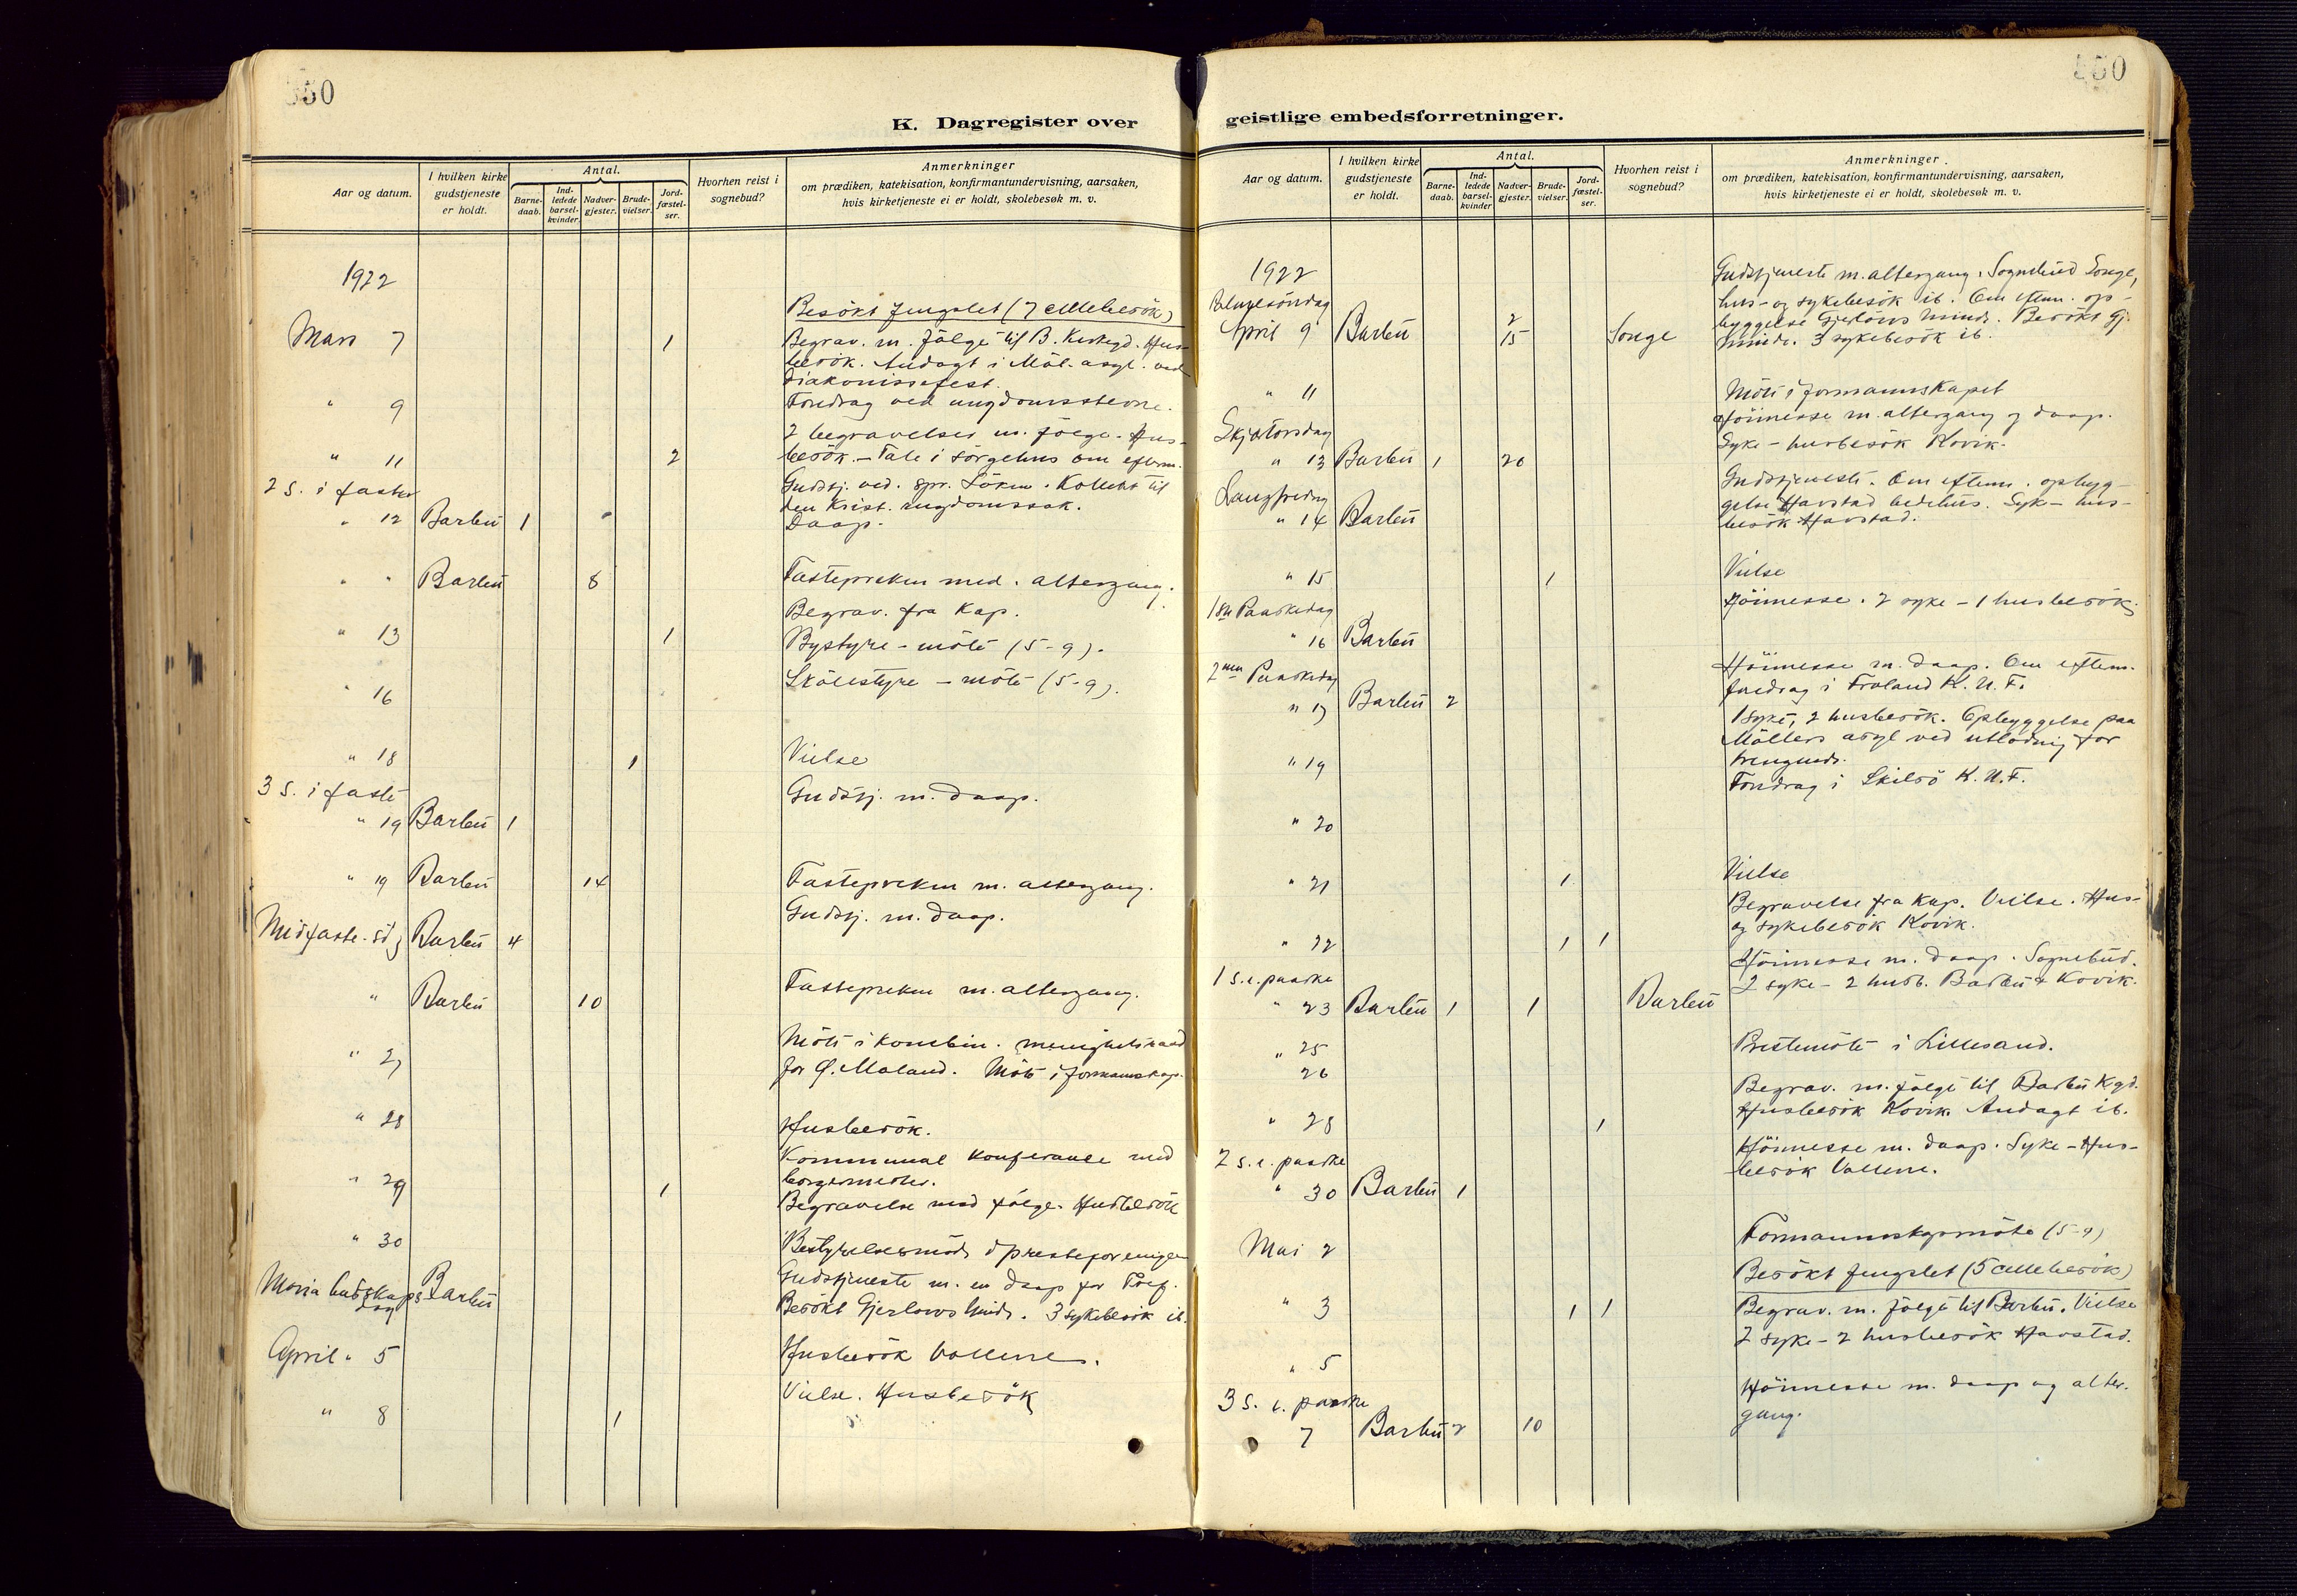 550
K. Dagregister over
Aar og datum.
I hvilken kirke gudstjeneste er holdt.
Antal.
Barne-daab.
Ind-ledede barsel-kvinder.
Nadver-gjester.
Brude-vielser.
Jord-fæstel-ser.
Hvorhen reist i sognebud?
Anmerkninger
om prædiken, katekisation, konfirmantundervisning, aarsaken,
hvis kirketjeneste ei er holdt, skolebesøk m. v.
1922
Besökt fengslet (7 cellebesök)
Mars 7 1 Begrav. m. fölge til B. Kirkegd. Hus-
besök. Andagt i Möl. asyl. ved
diakonissefest.
" 9 Foredrag ved ungdomsstevne.
2 begravelser m. fölge. Hus-
" 11 2 besök. - Tale i sörgehus om efterm.
2 S. i faste Gudstj. ved. spr. Löken. Kollekt til
den Krist. ungdomssak.
" 12 Barbu 1 Daap.
" " Barbu 8 Fastepreken med. altergang.
Begrav. fra Kap.
" 13 1 Bystyre - möte (5-9).
" 16 Skolestyre - möte (5-9).
" 18 1 Vielse
3 S. i faste Gudstj. m. daap.
" 19 Barbu 1
" 19 Barbu 14 Fastepreken m. altergang.
Midfaste. sdg Barbu 4 Gudstj. m. daap.
" Barbu 10 Fasteprekен m. altergang.
" 27 Möte i kombin. menighetsraad
for Ö. Moland. Möte i formannskap.
" 28 Husbesök.
Kommunal konferanse med
" 29 1 borgermester.
Begravelse med fölge. Husbesök
" 30 Bestyrelsesmöde i presteforeningen
Maria budskaps dag Barbu Gudstjeneste m. en daap for Tref.
Besökt Gjerlows Minde. 3 sykebesök ib.
April " 5 Husbesök Vollene.
" 8 1 Vielse. Husbesök
550
geistlige embedsforretninger.
Aar og datum.
I hvilken kirke gudstjeneste er holdt.
Antal.
Barne-daab.
Ind-ledede barsel-kvinder
Nadver-gjester.
Brude-vielser.
Jord-fæstel-ser.
Hvorhen reist i sognebud?
Anmerkninger.
om prædiken, katekisation, konfirmantundervisning, aarsaken,
hvis kirketjeneste ei er holdt, skolebesøk m. v.
1922
Gudstjeneste m. altergang. Sognebud Songe,
Palmesöndag hus- og sykebesök ib. Om eftm. op-
April 9 Barbu 2 15 Songe byggelse Gjerlöws Minde. Besökt Gj.
Minde. 3 sykebesök ib.
" 11 Möte i formannskapet
Skjærtorsdag Höimesse m. altergang og daap.
" 13 Barbu 1 20 Syke - husbesök Kovik.
Langfredag Gudstjeneste. Om eftm. opbyg-
" 14 Barbu gelse Havstad bedehus. Syk - hus-
besök Havstad.
" 15 1 Vielse
1ste Paaskedag Höimesse. 2 syke - 1 husbesök.
" 16 Barbu
2nen Paaskedag Höimesse m. daap. Om eftem.
" 17 Barbu 2 foredrag i Froland K. U. F.
1 syke, 2 husbesök. Opbyggelse paa
" 19 Möllers asyl ved utlodning for
trengende.
" 20 Foredrag i Skilsö K. U. F.
" 21 1 Vielse
Begravelse fra Kap. Vielse. Hus-
" 22 1 1 og sykebesök Kovik.
1 S. e. paaske Höimesse m. daap. Sognebud.
" 23 Barbu 1 1 Barbu 2 syke - 2 husb. Barbu & Kovik.
" 25 Prestemöte i Lillesand.
26
" 28 1 Begrav. m. fölge til Barbu Kgd.
Husbesök Kovik. Andagt ib.
2 S. e. paaske Höimesse m. daap. Syke - Hus-
" 30 Barbu 1 besök Vollene.
Mai 2 Formannskapsmöte (5-9)
Besökt fengslet (5 cellebesök)
" 3 1 1 Begrav. m. fölge til Barbu. Vielse
" 5 2 syke - 2 husbesök Havstad.
3 S. e. paaske Höimesse m. daap og alter-
7 Barbu 2 10 gang.